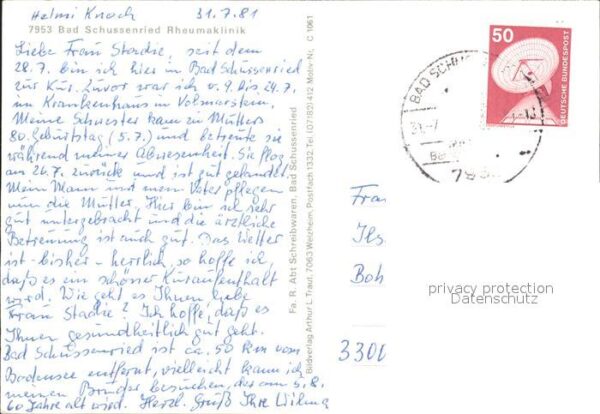 Helmi Knoch 31.7.81
7953 Bad Schussenried Rheumaklinik
Liebe Frau Stadie, seit dem
28.7. bin ich hier in Bad Schussenried
zur Kur. Zuvor war ich v. 9. bis 24.7.
im Krankenhaus in Volmarstein.
Meine Schwester kam zu Mutters
80. Geburtstag (5.7.) und betreute sie
während meiner Abwesenheit. Sie flog
am 26.7. zurück und ist gut gelandet.
Mein Mann und mein Vater pflegen
nun die Mutter. Hier bin ich sehr
gut untergebracht und die ärztliche
Betreuung ist auch gut. Das Wetter
ist - bisher - herrlich, so hoffe ich,
daß es ein schöner Kuraufenthalt
wird. Wie geht es Ihnen, liebe
Frau Stadie? Ich hoffe, daß es
Ihnen gesundheitlich gut geht.
Bad Schussenried ist ca. 50 km vom
Bodensee entfernt, vielleicht kann ich
meinen Bruder besuchen, der am 5.8.
60 Jahre alt wird. Herzl. Gruß Ihre
Fa. R. Abt Schreibwaren, Bad Schussenried
Bildverlag Arthur L. Traut, 7063 Welzheim, Postfach 1332, Tel. (07182) 412 Motiv-Nr. C 1061
50
DEUTSCHE BUNDESPOST
BAD SCHU
31.-7
Frau
Ils
Boh
3300
privacy protection
Datenschutz